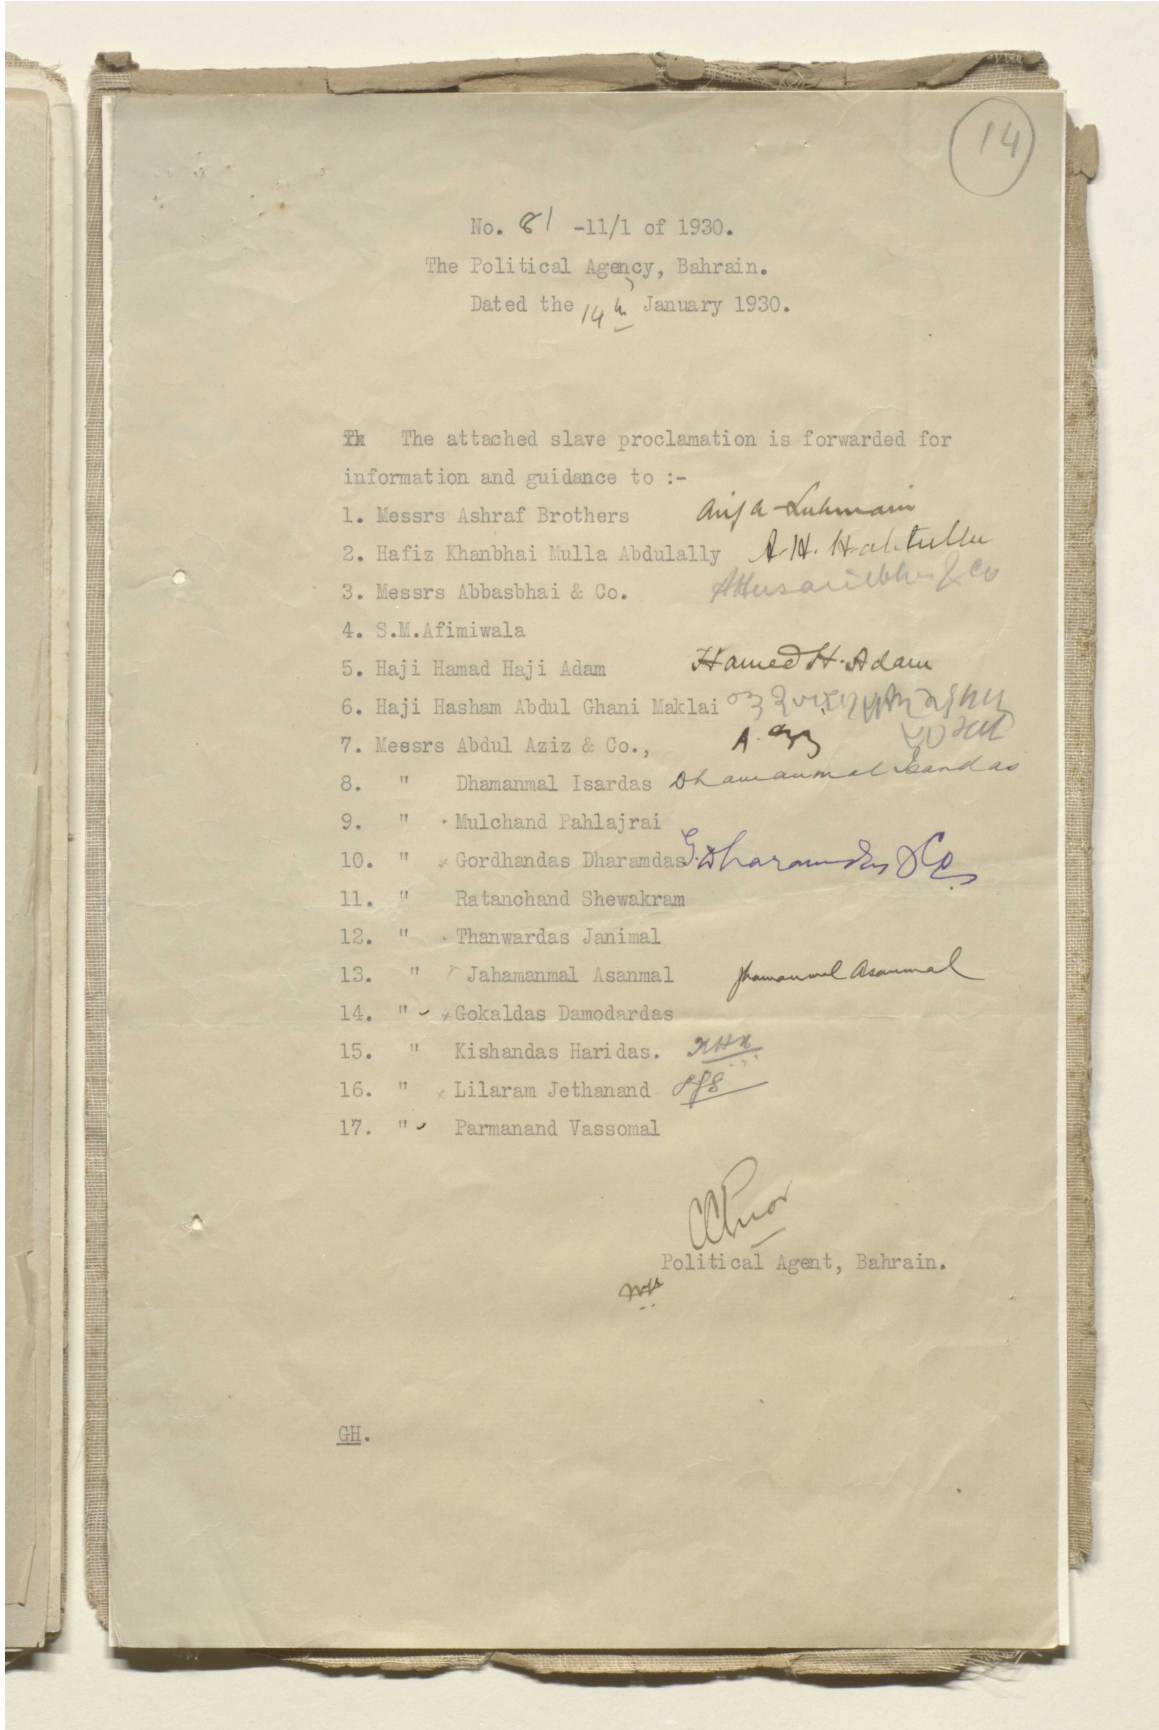 14
No. 81 -11/1 of 1930.
The Political Agency, Bahrain.
Dated the 14th January 1930.
Th The attached slave proclamation is forwarded for
information and guidance to :-
1. Messrs Ashraf Brothers
2. Hafiz Khanbhai Mulla Abdulally A. H.
3. Messrs Abbasbhai & Co. & Co
4. S.M.Afimiwala
5. Haji Hamad Haji Adam Hamed H. Adam
6. Haji Hasham Abdul Ghani Maklai
7. Messrs Abdul Aziz & Co., A.
8. " Dhamanmal Isardas Dhamanmal Isardas
9. " Mulchand Pahlajrai
10. " Gordhandas Dharamdas G. Dharamdas & Co.
11. " Ratanchand Shewakram
12. " Thanwardas Janimal
13. " Jahamanmal Asanmal Jhamanmal Asanmal
14. " Gokaldas Damodardas
15. " Kishandas Haridas.
16. " Lilaram Jethanand
17. " Parmanand Vassomal
CCPrior
Political Agent, Bahrain.
GH.